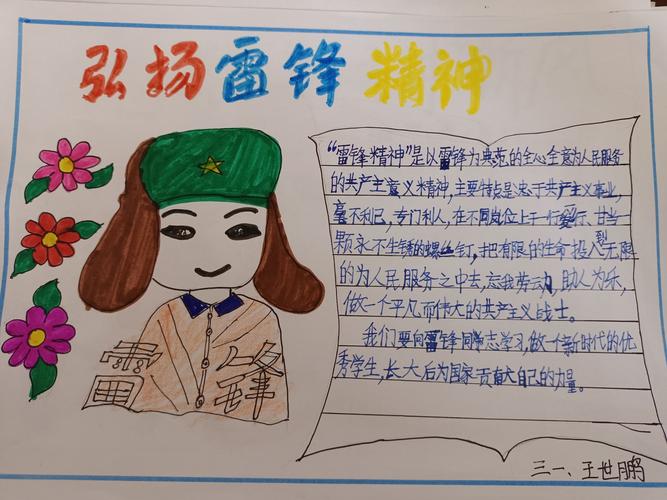 弘扬雷锋精神
"雷锋精神"是以雷锋为典范的全心全意为人民服务
的共产主义精神,主要特点是忠于共产主义事业,
毫不利己,专门利人,在不同岗位上干一行爱行、甘当一
颗永不生锈的螺丝钉,把有限的生命投入到无限
的为人民服务之中去,忘我劳动,助人为乐,
做一个平凡而伟大的共产主义战士。
我们要向雷锋同志学习,做一个新时代的优
秀学生,长大后为国家贡献自己的力量。
雷锋
三一、王世鹏